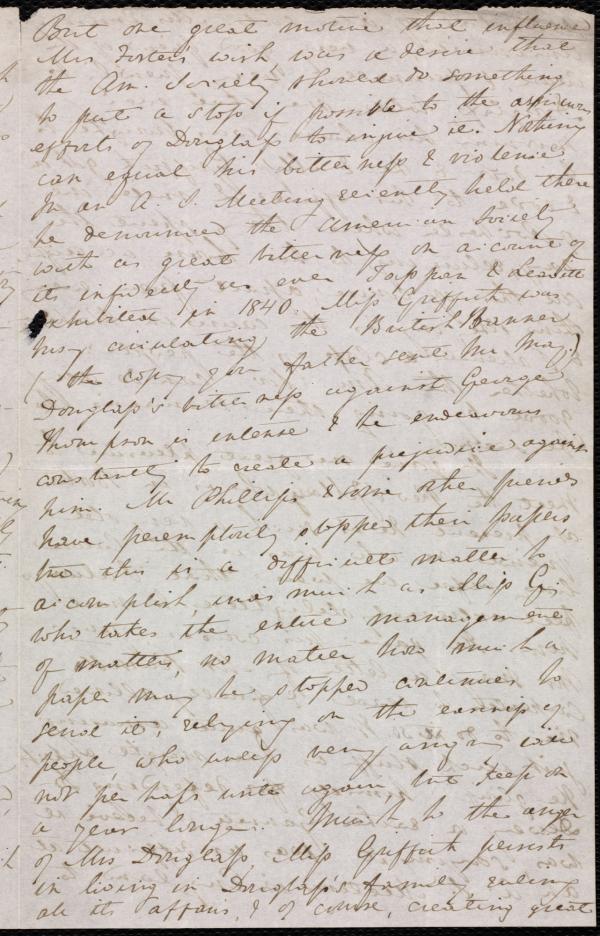 But one great motive that influenced
Mrs Foster's wish, was a desire that
the Am. Society should do something
to put a stop if possible to the
efforts of Douglass to injure it. Nothing
can equal his bitterness & violence.
In an A. S. Meeting recently held there
he denounced the American Society
with as great bitterness on account of
its infidelity as ever Tappan & Leavitt
exhibited in 1840. Miss Griffith was
busy circulating the British Banner
(the copy your father sent Mr May.)
Douglass's bitterness against George
Thompson is intense & he endeavours
constantly to create a prejudice against
him. Mr Phillips & some other friends
have peremptorily stopped their papers
but this is a difficult matter to
accomplish, inasmuch as Miss G.
who takes the entire management
of matters, no matter how much a
paper may be stopped continues to
send it, relying on the
people who unless very angry will
not perhaps write again, but keep on
a year longer. Much to the anger
of Mrs Douglass, Miss Griffith persists
in living in Douglass's family, ruling
all its affairs, & of course, creating great